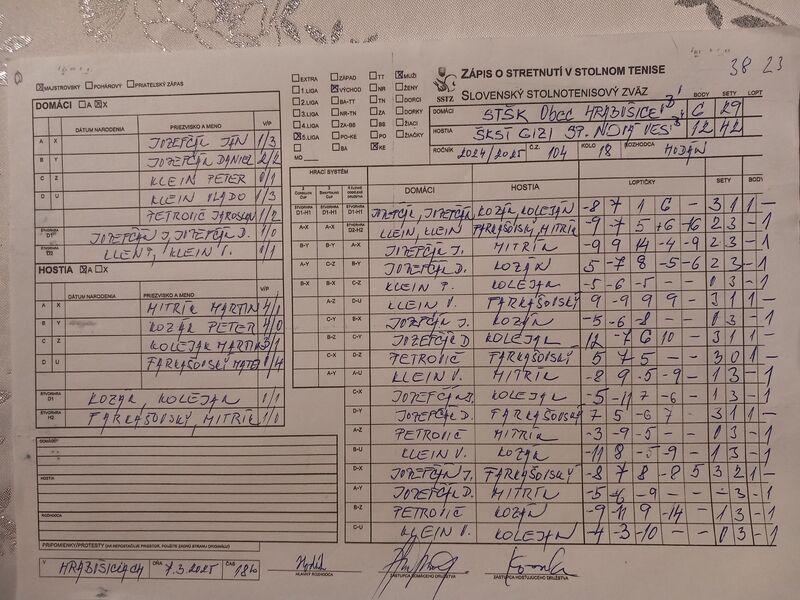 38 23
MAJSTROVSKÝ POHÁROVÝ PRIATEĽSKÝ ZÁPAS
EXTRA ZÁPAD TT MUŽI
1.LIGA VÝCHOD NR ŽENY
2.LIGA BA-TT TN DORCI
3.LIGA NR-TN ZA DORKY
4.LIGA ZA-BB BB ŽIACI
5.LIGA PO-KE PO ŽIAČKY
MO BA KE
SSTZ
ZÁPIS O STRETNUTÍ V STOLNOM TENISE
SLOVENSKÝ STOLNOTENISOVÝ ZVÄZ
BODY SETY LOPT
DOMÁCI STŠK Obec HRABUŠICE 6 29
HOSTIA ŠKST GIZI SP. NOVÁ VES 12 42
ROČNÍK 2024/2025 Č.Z. 104 KOLO 18 ROZHODCA
DOMÁCI A X
DÁTUM NARODENIA PRIEZVISKO A MENO V/P
A X JOZEFČÁK JÁN 1/3
B Y JOZEFČÁK DANIEL 2/2
C Z KLEIN PETER 0/1
D U KLEIN VLADO 1/3
PETROVIČ JAROSLAV 1/2
ŠTVORHRA D1 JOZEFČÁK J, JOZEFČÁK D. 1/0
ŠTVORHRA D2 KLEIN P, KLEIN V. 0/1
HOSTIA A X
DÁTUM NARODENIA PRIEZVISKO A MENO V/P
A X MITRÍK MARTIN 4/1
B Y KOZÁK PETER 4/0
C Z KOLEJÁK MARTIN 3/1
D U FARKAŠOVSKÝ MATEJ 0/4
ŠTVORHRA D1 KOZÁK, KOLEJAK 0/1
ŠTVORHRA H2 FARKAŠOVSKÝ, MITRÍK 1/0
HRACÍ SYSTÉM DOMÁCI HOSTIA LOPTIČKY SETY BODY
D1-H1 D1-H1 D1-H1 JOZEFČÁK, JOZEFČÁK KOZÁK, KOLEJÁK -8 7 1 6 - 3 1 1 -
A-X A-X D2-H2 KLEIN, KLEIN FARKAŠOVSKÝ, MITRÍK -9 -7 5 +6 -16 2 3 - 1
B-Y B-Y A-X JOZEFČÁK J. MITRÍK -9 9 14 -4 -9 2 3 - 1
A-Y C-Z B-Y JOZEFČÁK D. KOZÁK 5 -7 8 -5 -6 2 3 - 1
B-X B-X C-Z KLEIN P. KOLEJAK -5 -6 -5 - - 0 3 - 1
A-Z D-U KLEIN V. FARKAŠOVSKÝ 9 -9 9 9 - 3 1 1 -
C-Y B-X JOZEFČÁK J. KOZÁK -5 -6 -8 - - 0 3 - 1
B-Z C-Y JOZEFČÁK D KOLEJAK 12 -7 6 10 - 3 1 1 -
C-X D-Z PETROVIČ FARKAŠOVSKÝ 5 7 5 - - 3 0 1 -
A-Y A-U KLEIN V. MITRÍK -8 9 -5 -9 - 1 3 - 1
C-X JOZEFČÁK J. KOLEJAK -5 -11 7 -6 - 1 3 - 1
D-Y JOZEFČÁK D. FARKAŠOVSKÝ 7 5 -6 7 - 3 1 1 -
A-Z PETROVIČ MITRÍK -3 -9 -5 - - 0 3 - 1
B-U KLEIN V. KOZÁK -11 8 -5 -9 - 1 3 - 1
D-X JOZEFČÁK J. FARKAŠOVSKÝ -8 7 8 -8 5 3 2 1 -
A-Y JOZEFČÁK D. MITRÍK -5 -6 -9 - - - 3 - 1
B-Z PETROVIČ KOZÁK -9 -11 9 -14 - 1 3 - 1
C-U KLEIN V. KOLEJAK -4 -3 -10 - - 0 3 - 1
DOMÁCI
HOSTIA
ROZHODCA
PRIPOMIENKY/PROTESTY (AK NEPOSTAČUJE PRIESTOR, POUŽITE ZADNÚ STRANU ORIGINÁLU)
V HRABUŠICIACH DŇA 7.3.2025 ČAS 18h
HLAVNÝ ROZHODCA ZÁSTUPCA DOMÁCEHO DRUŽSTVA ZÁSTUPCA HOSŤUJÚCEHO DRUŽSTVA